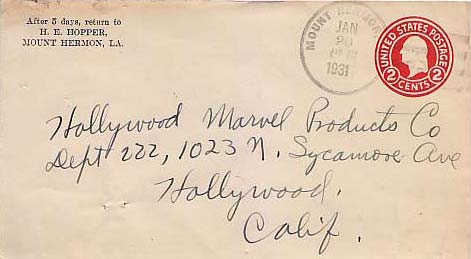 After 5 days, return to
H. E. HOPPER,
MOUNT HERMON, LA.
MOUNT HERMON
JAN
20
1931
UNITED STATES POSTAGE
2 CENTS 2
Hollywood Marvel Products Co
Dept 222, 1023 N. Sycamore Ave
Hollywood.
Calif.